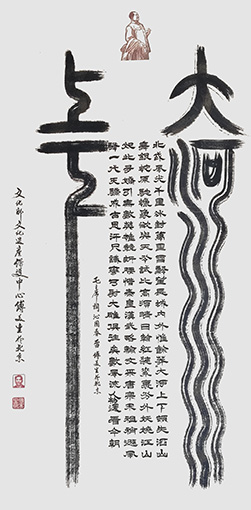 大河
上下
北國風光千里冰封萬里雪飄望長城內外惟餘莽莽大河上下頓失滔滔山
舞銀蛇原馳蠟象欲與天公試比高須晴日看紅裝素裹分外妖嬈江山
如此多嬌引無數英雄競折腰惜秦皇漢武略輸文采唐宗宋祖稍遜風
騷一代天驕成吉思汗只識彎弓射大雕俱往矣數風流人物還看今朝
毛主席詞沁園春雪傅文生於北京
文化部文化遺產保護中心傅文生於北京